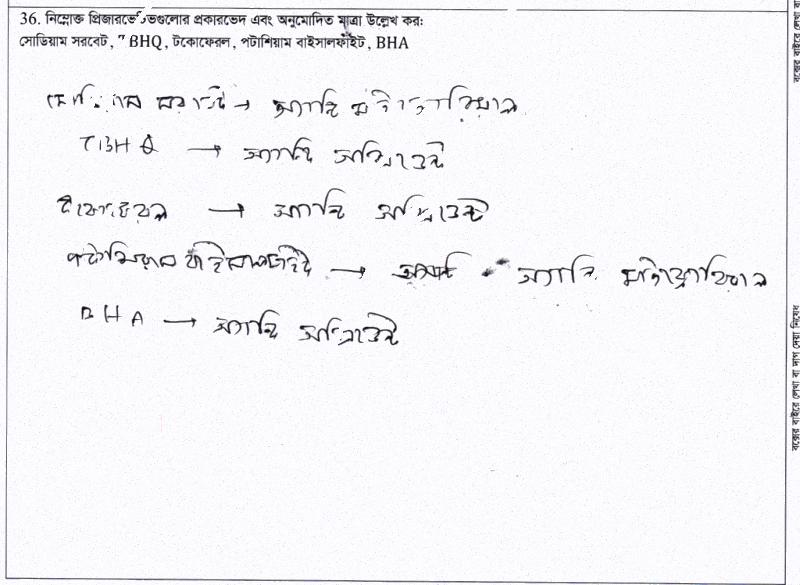 36. নিম্নোক্ত প্রিজারভেটিভগুলোর প্রকারভেদ এবং অনুমোদিত মাত্রা উল্লেখ কর:
সোডিয়াম সরবেট, TBHQ, টকোফেরল, পটাশিয়াম বাইসালফাইট, BHA
সোডিয়াম সরবেট → অ্যান্টি মাইক্রোবিয়াল
TBHQ → অ্যান্টি অক্সিডেন্ট
টকোফেরল → অ্যান্টি অক্সিডেন্ট
পটাসিয়াম বাইসালফাইট → অ্যান্টি মাইক্রোবিয়াল
BHA → অ্যান্টি অক্সিডেন্ট
বক্সের বাইরে লেখা বা দাগ দেয়া নিষেধ
বক্সের বাইরে লেখা বা